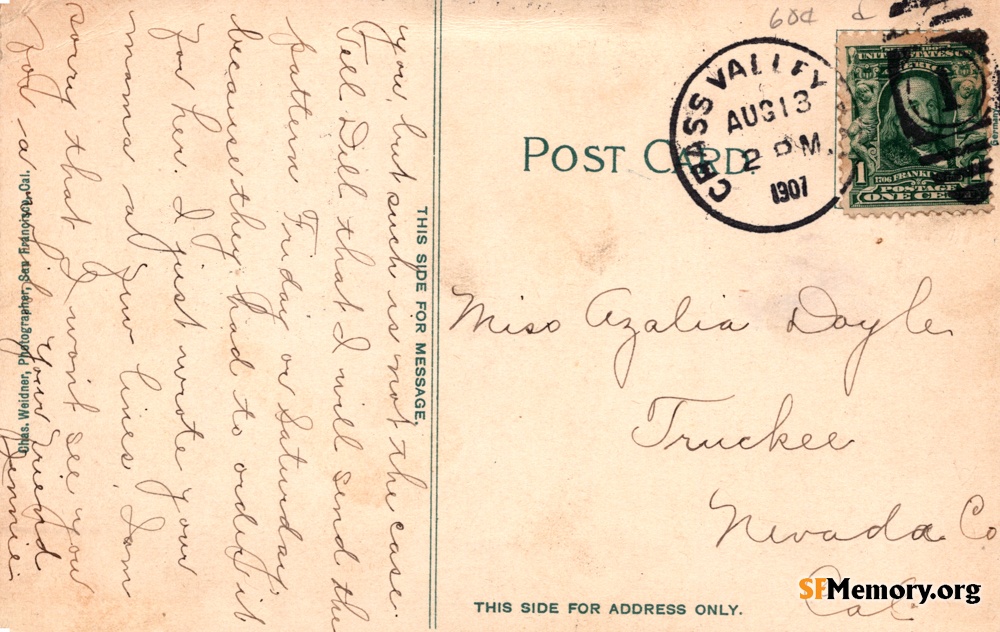 60¢ d
GRASS VALLEY
AUG 13
2 P M.
1907
SERIES 1902
UNITED STATES OF AMERICA
1
1706 FRANKLIN
POSTAGE
ONE CENT
Germany
POST CARD
THIS SIDE FOR MESSAGE.
you, but such is not the case.
Tell Dell that I will send the
pattern Friday or Saturday,
because they had to order it
for her. I just wrote your
mama a few lines. I am
sorry that I won't see you
for a
your friend
Jennie.
Chas. Weidner, Photographer, San Francisco, Cal.
Miss Azalia Doyle
Truckee
Nevada Co
Cal.
THIS SIDE FOR ADDRESS ONLY.
SFMemory.org